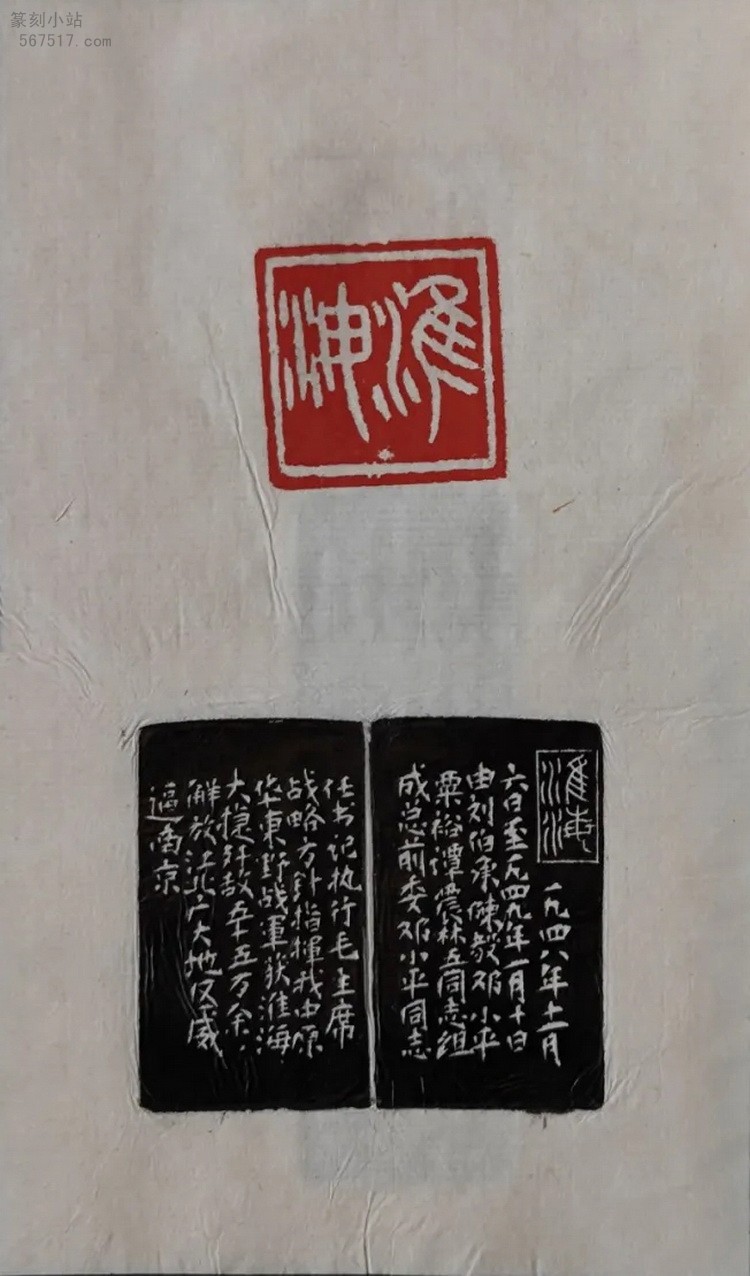 篆刻小站
567517.com
淮海
淮海
一九四八年十一月
六日至一九四九年一月十日
由刘伯承陳毅邓小平
粟裕谭震林五同志组
成总前委邓小平同志
任书记执行毛主席
战略方針指揮我中原
华東野战軍获淮海
大捷歼敌五十五万余、
解放江北广大地区威
逼南京